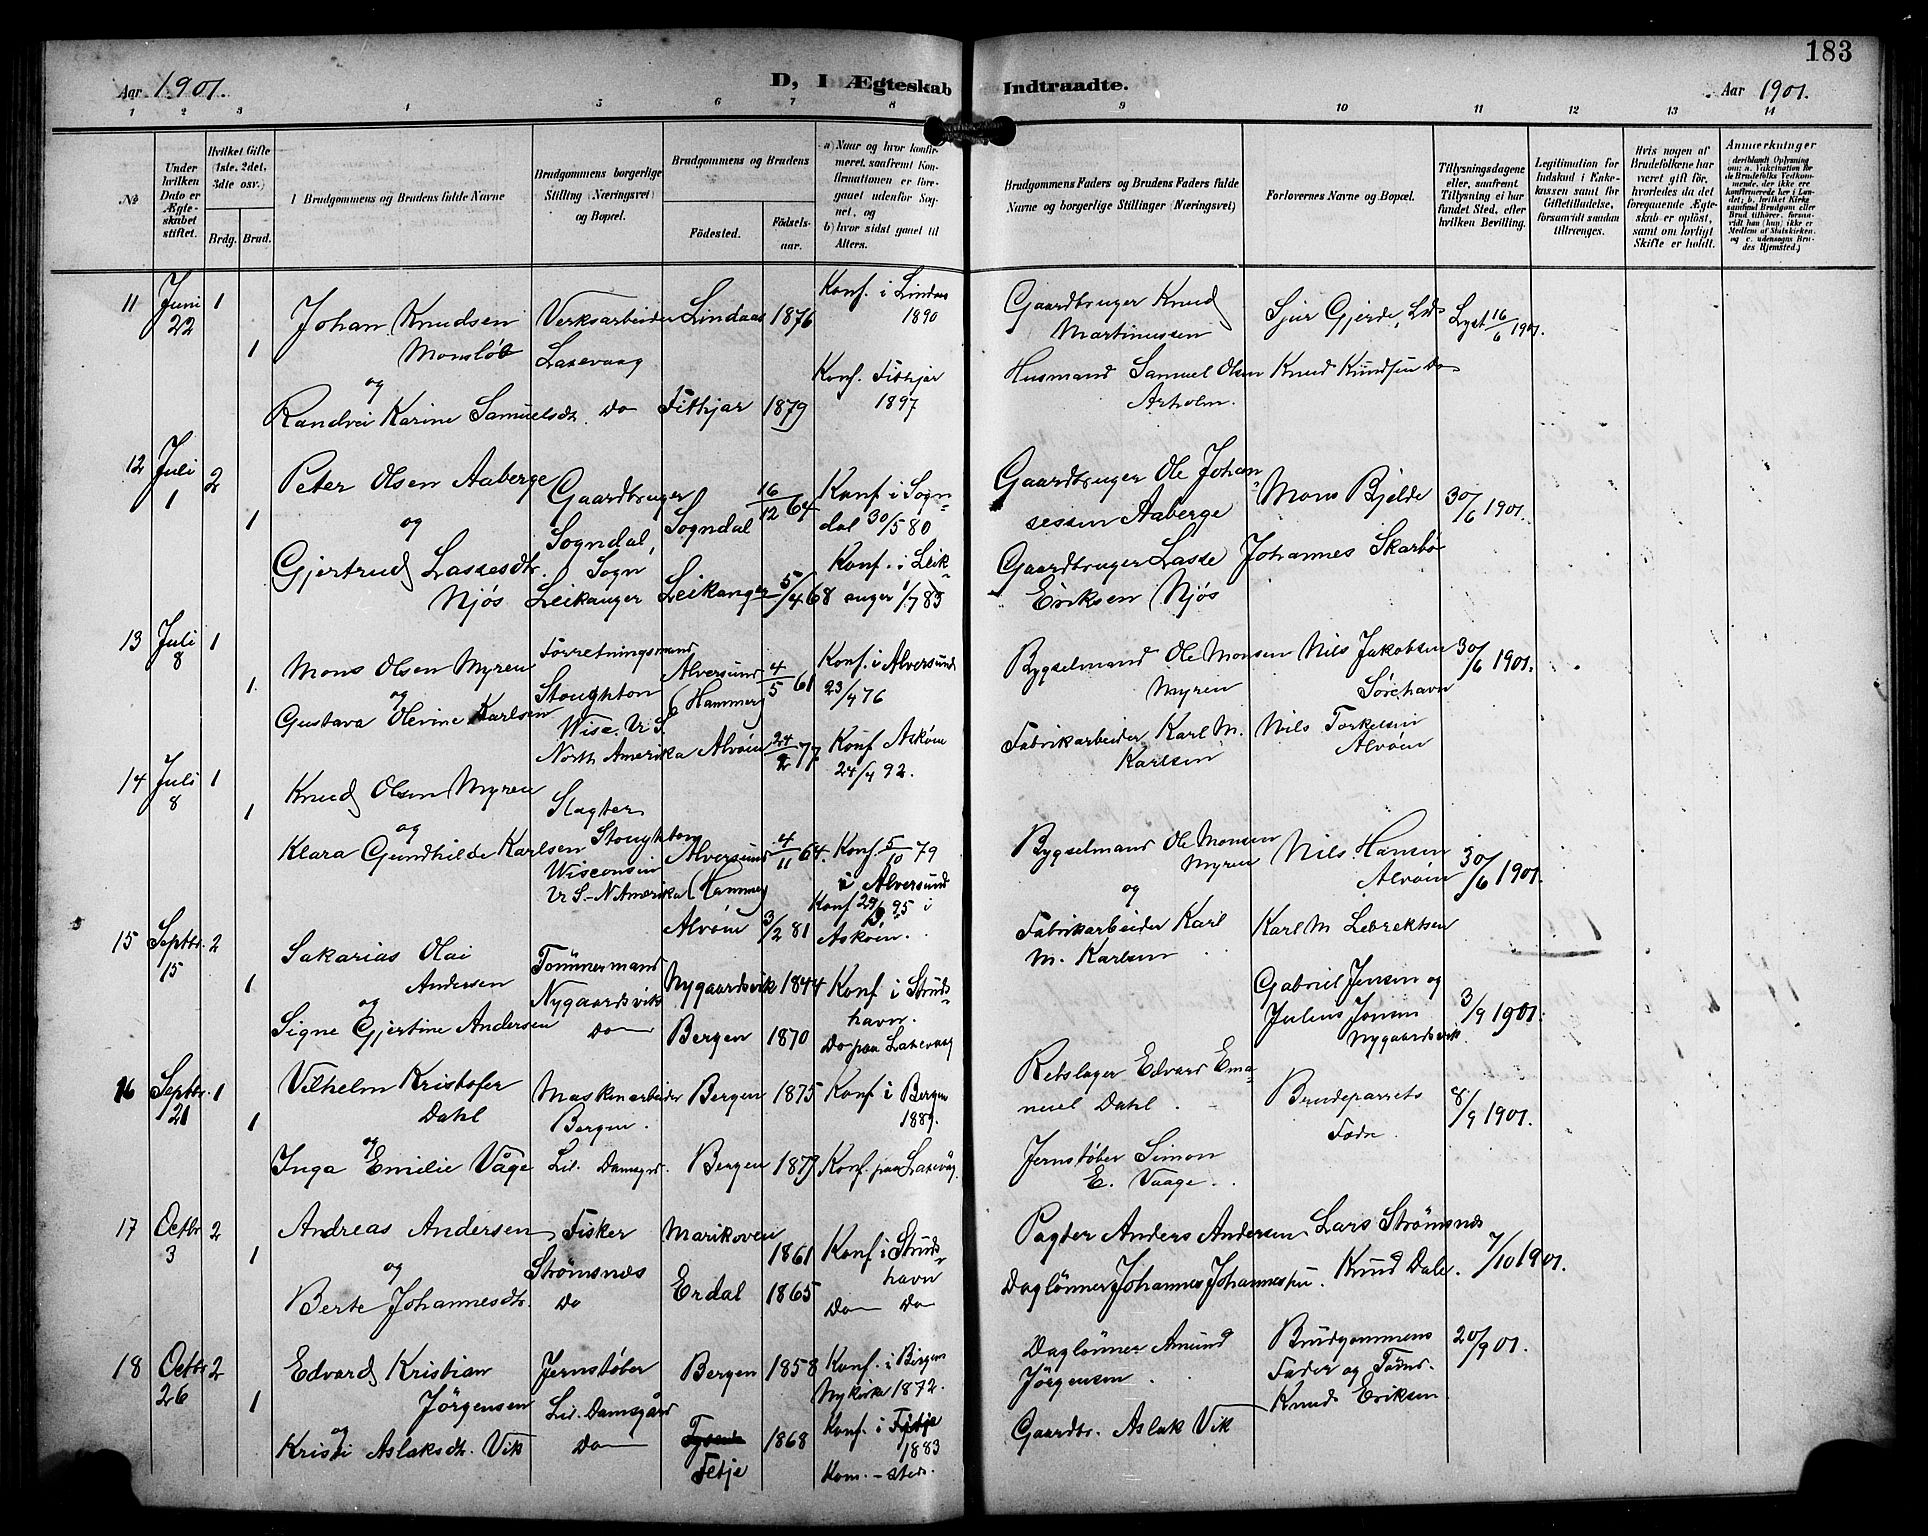 183
Aar 1901.
D, I Ægteskab Indtraadte.
Aar 1901.
1 2 3 4 5 6 7 8 9 10 11 12 13 14
No
Under hvilken Dato er Ægteskabet stiftet.
Hvilket Gifte (1ste, 2det, 3dte osv.)
Brdg. Brud.
Brudgommens og Brudens fulde Navne
Brudgommens borgerlige Stilling (Næringsvei) og Bopæl.
Brudgommens og Brudens
Födested.
Födselsaar.
a) Naar og hvor konfirmeret, saafremt Konfirmationen er foregaaet udenfor Sognet, og
b) hvor sidst gaaet til Alters.
Brudgommens Faders og Brudens Faders fulde Navne og borgerlige Stillinger (Næringsvei)
Forlovernes Navne og Bopæl.
Tillysningsdagene eller, saafremt Tillysning ei har fundet Sted, efter hvilken Bevilling.
Legitimation for Indskud i Enkekassen samt for Giftetilladelse, forsaavidt saadan tiltrænges.
Hvis nogen af Brudefolkene har været gift för, hvorledes da det foregaaende Ægteskab er oplöst, samt om lovligt Skifte er holdt.
Anmærkninger
11 Juni 22 1 1
Johan Knudsen Monslöb
og
Randvei Karine Samuelsdt.
Verksarbeider Laxevaag
Do
Lindaas 1876
Fithjar 1879
Konf. i Lindaas 1890
Konf. Fithjar 1897
Gaardbruger Knud Martinussen
Husmand Samuel Olsen Arholm.
Sjur Gjerde, Lds
Knud Knudsen Do
Lyst 16/6 1901.
12 Juli 1 2 1
Peter Olsen Aaberge
og
Gjertrud Lassesdtr. Njös
Gaardbruger Sogndal, Sogn
Leikanger
Sogndal 16/12 64
Leikanger 5/4 68
Konf i Sogndal 30/5 80
Konf. i Leikanger 1/7 83
Gaardbruger Ole Johannessen Aaberge
Gaardbruger Lasse Eriksen Njös
Mons Bjelde
Johannes Skarbö
30/6 1901.
13 Juli 8 1 1
Mons Olsen Myren
og
Gustava Olevine Karlsen
Forretningsmand
Stoughton
Wisc. U. S.
North Amerika
Alversund (Hammer) 4/5 61
Alvöen 24/2 77
Konf. i Alversund 23/4 76
Konf Asköen 24/4 92.
Bygselmand Ole Monsen Myren
Fabrikarbeider Karl M. Karlsen
Nils Jakobsen Sörehavn
Nils Torkelsen Alvöen
30/6 1901.
14 Juli 8 1 1
Knud Olsen Myren
og
Klara Gundhilde Karlsen
Slagter
Stoughton
Wisconsin
U S.- N Amerika
Alversund (Hammer) 4/11 64.
Alvöen 3/2 81
Konf. 5/10 79 i Alversund
Konf 29/9 95 i Asköen.
Bygselmand Ole Monsen Myren
og
Fabrikarbeider Karl M. Karlsen
Nils Hansen Alvöen
Karl M Lebrektsen
30/6 1901.
15 Septbr. 15 2 1
Sakarias Olai Andersen
og
Signe Gjertine Andersen
Tömmermand Nygaardsvik
Do
Nygaardsvik 1844
Bergen 1870
Konf i Strudshavn.
Do paa Laxevaag
Gabriel Jensen og
Julius Jensen
Nygaardsvik.
3/9 1901.
16 Septbr. 21 1 1
Vilhelm Kristofer Dahl
og
Inga Emilie Våge
Maskinarbeider Bergen.
Lil. Damsgrd.
Bergen 1875
Bergen 1879
Konf i Bergen 1889.
Konf. paa Laxevåg
Rebslager Edvard Emanuel Dahl.
Jernstøber Simon E. Vaage.
Brudeparrets Fædre.
8/9 1901.
17 Octbr 3 2 1
Andreas Andersen
og
Berte Johannesdtr.
Fisker Strömsnæs
Do
Marikoven 1861
Erdal 1865
Konf i Strudshavn
Do Do
Pagter Anders Andersen
Daglönner Johannes Johannessen.
Lars Strömsnæs
Knud Dale.
7/10 1901.
18 Octbr 26 2 1
Edvard Kristian Jörgensen
og
Kristi Aslaksdtr. Vik
Jernstøber Lil. Damsgård
Do
Bergen 1858
Fetje 1868
Konf. i Bergen Nykirke 1872.
Konf. i Fetje 1883
Kom. - steds.
Daglönner Amund Jörgensen.
Gaardbr. Aslak Vik
Brudgommens Fader og
Knud Eriksen
20/9 01.